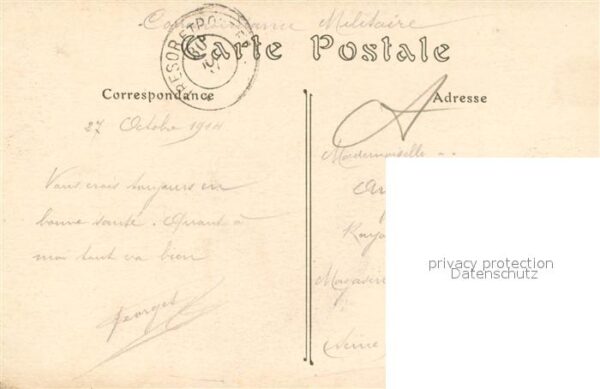 Correspondance Militaire
TRESOR ET POSTES
Carte Postale
Correspondance
Adresse
27 Octobre 1914
Mademoiselle
Vous crois toujours en
bonne santé. Quant à
moi tout va bien
Magasin
Georges
privacy protection
Datenschutz